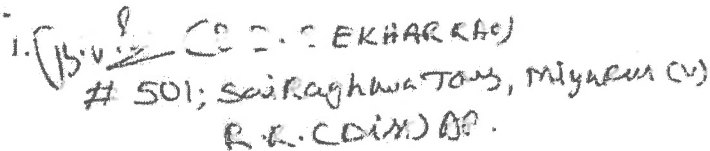 1. (B.V. EKHAR RAO)
# 501; Sai Raghava Towers, Miyapur (V)
R.R. (Dist) AP.